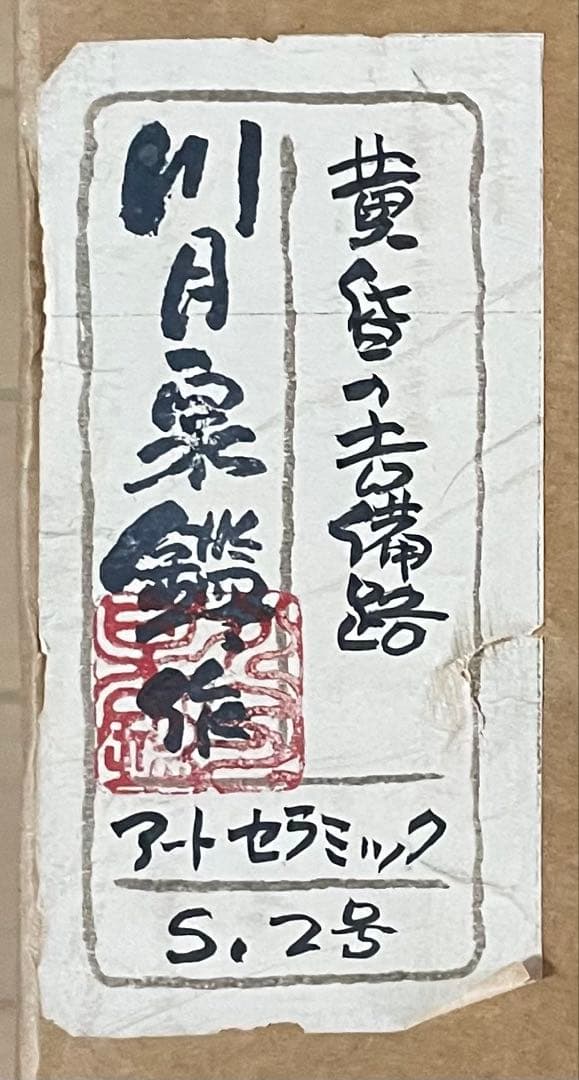 黄昏の吉備路
川月 作
アートセラミック
S.2号